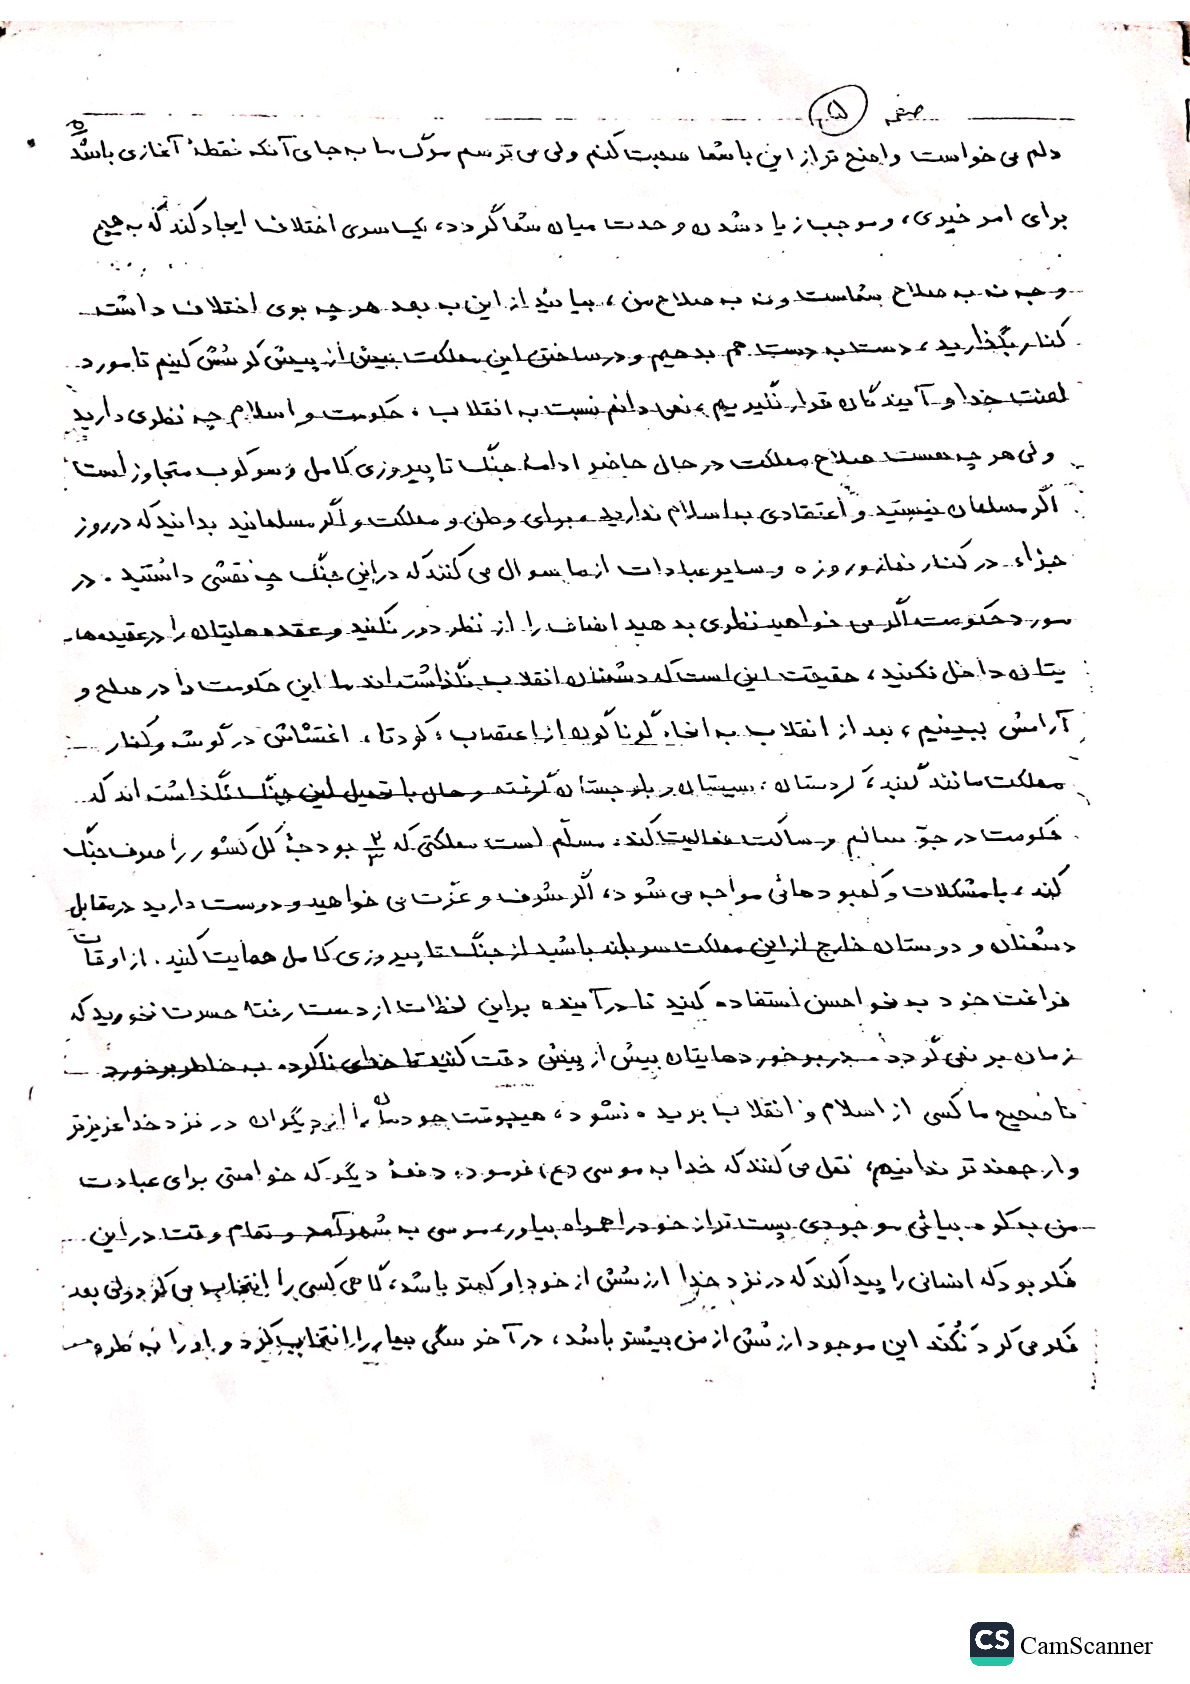 صفحه ۵
دلم می خواست واضح تر از این با شما صحبت کنم ولی می ترسم مرگ ما به جای آنکه نقطهٔ آغازی باشد
برای امر خیری، و موجب ازیاد شدن وحدت میان شما گردد، یک سری اختلاف ایجاد کند که به هیچ
وجه نه به صلاح شماست و نه به صلاح من، بیائید از این به بعد هر چه بوی اختلاف داشت
کنار بگذارید، دست به دست هم بدهیم و در ساختن این مملکت بیش از پیش کوشش کنیم تا مورد
لعنت خدا و آیندگان قرار نگیریم، نمی دانم نسبت به انقلاب، حکومت و اسلام چه نظری دارید
ولی هر چه هست صلاح مملکت در حال حاضر ادامهٔ جنگ تا پیروزی کامل و سرکوب متجاوز است
اگر مسلمان نیستید و اعتقادی به اسلام ندارید، برای وطن و مملکت و اگر مسلمانید بدانید که در روز
جزاء در کنار نماز و روزه و سایر عبادات از ما سوال می کنند که در این جنگ چه نقشی داشتید. در
مورد حکومت اگر می خواهید نظری بدهید انصاف را از نظر دور نکنید و عقده هایتان را در عقیده ها
یتان داخل نکنید، حقیقت این است که دشمنان انقلاب نگذاشته اند ما این حکومت را در صلح و
آرامش ببینیم، بعد از انقلاب به انحاء گوناگون از اعتصاب، کودتا، اغتشاش در گوشه و کنار
مملکت مانند گنبد، کردستان، سیستان و بلوچستان گرفته و حال با تحمیل این جنگ نگذاشته اند که
حکومت در جوّ سالم و ساکت فعالیت کند. مسلّم است مملکتی که ۲/۳ بودجهٔ کل کشور را صرف جنگ
کند، با مشکلات و کمبودهائی مواجه می شود، اگر شرف و عزّت می خواهید و دوست دارید در مقابل
دشمنان و دوستان خارج از این مملکت سربلند باشید از جنگ تا پیروزی کامل حمایت کنید. از اوقات
فراغت خود به نحو احسن استفاده کنید تا در آینده بر این لحظات از دست رفته حسرت نخورید که
زمان بر نمی گردد. در برخوردهایتان بیش از پیش دقت کنید تا خدای ناکرده به خاطر برخورد
ناصحیح ما کسی از اسلام و انقلاب بریده نشود، هیچوقت خودمان را از دیگران در نزد خدا عزیزتر
و ارجمندتر ندانیم، نقل می کنند که خدا به موسی (ع) فرمود: دفعهٔ دیگر که خواستی برای عبادت
من به کوه بیائی موجودی پست تر از خود را همراه بیاور، موسی به شهر آمد و تمام وقت در این
فکر بود که انسانی را پیدا کند که در نزد خدا ارزشش از خود او کمتر باشد، گاهی کسی را انتخاب می کرد ولی بعد
فکر می کرد نکند این موجود ارزشش از من بیشتر باشد، در آخر سگی بیمار را انتخاب کرد و او را به طرف
CS CamScanner